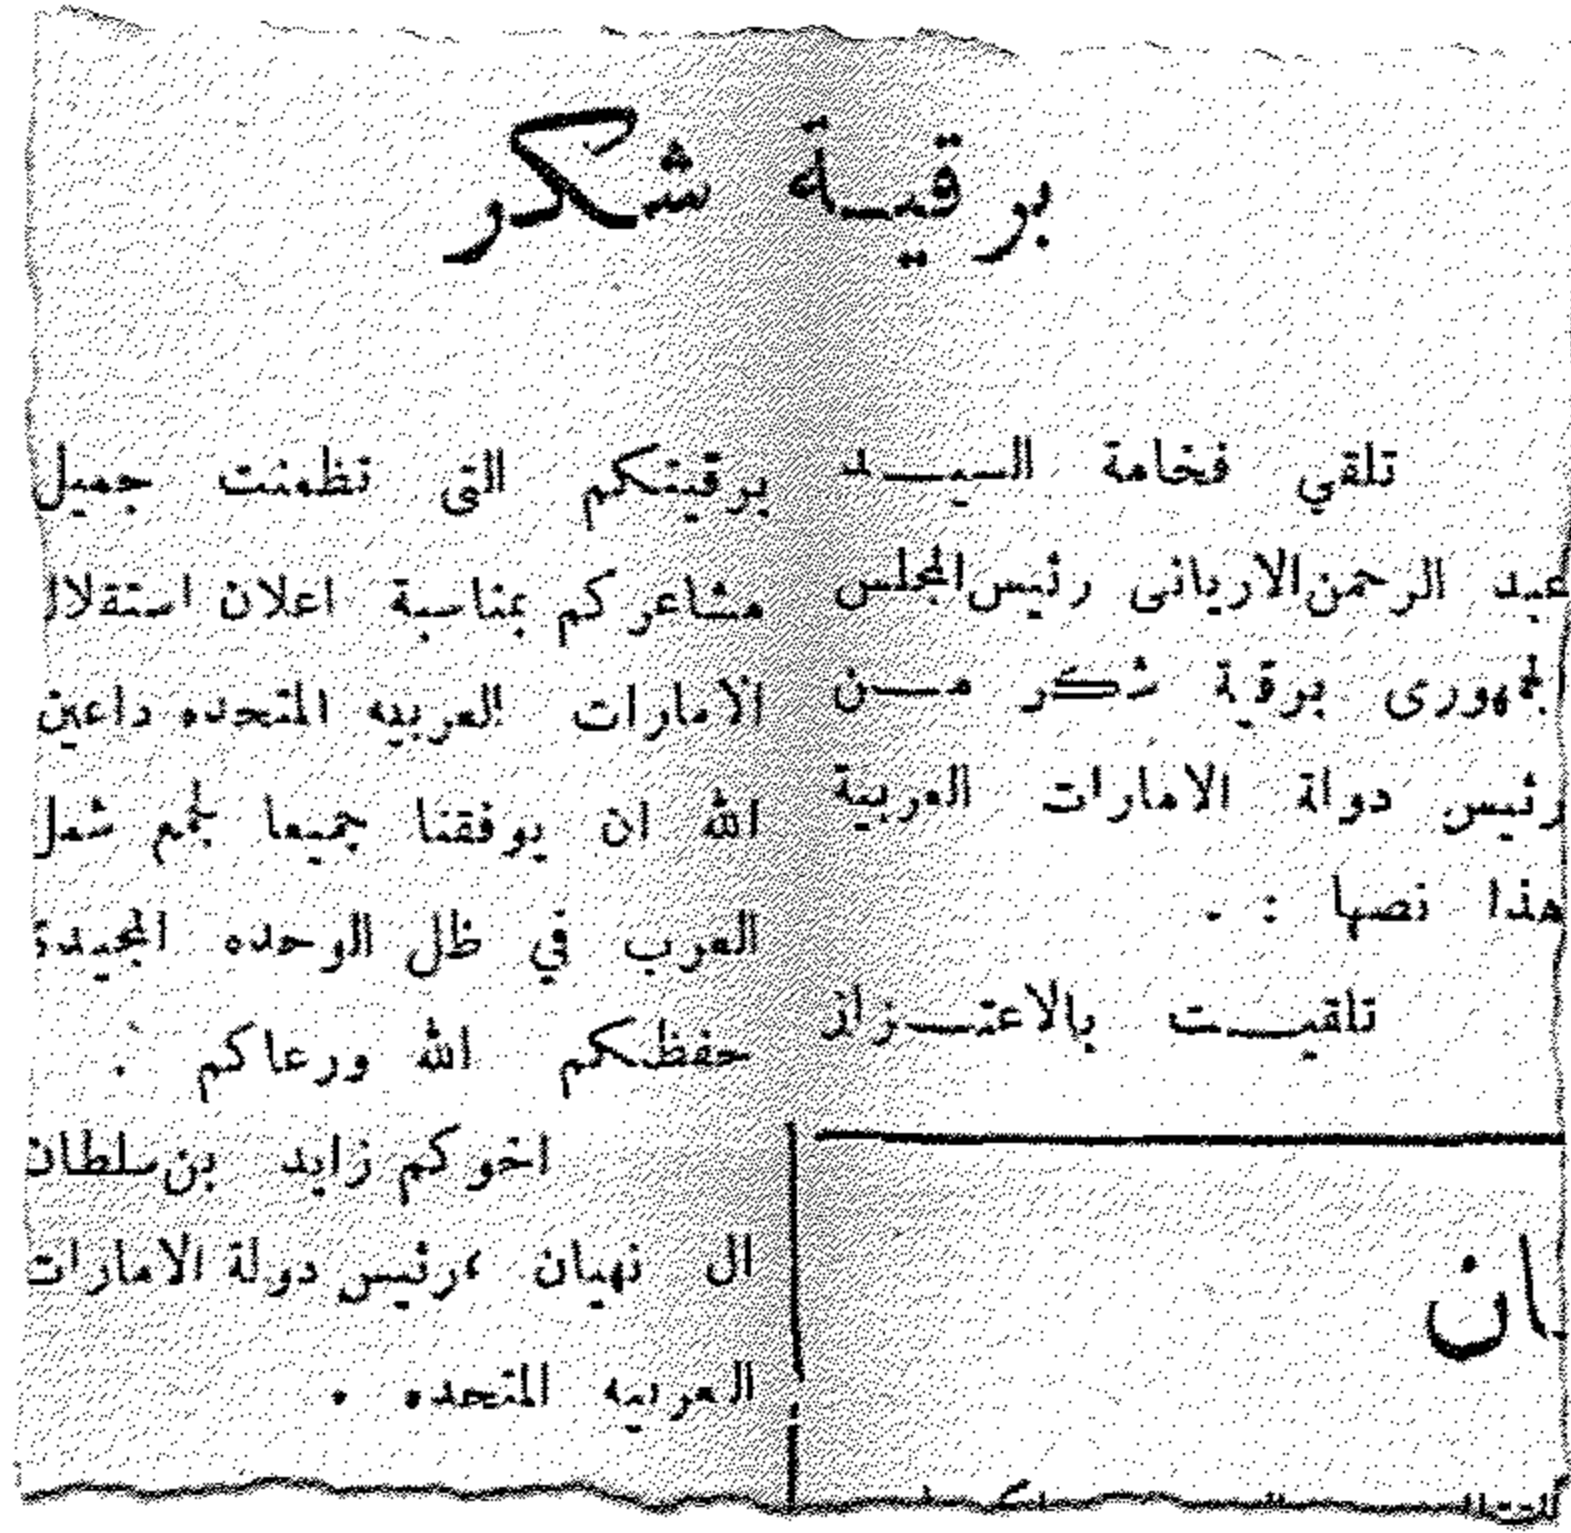 برقية شكر
تلقي فخامة السيد
عبد الرحمن الارياني رئيس المجلس
الجمهورى برقية شكر من
رئيس دولة الامارات العربية
هذا نصها : -
تلقيت بالاعتزاز
برقيتكم التى تظمنت جميل
مشاعركم بمناسبة اعلان استقلال
الامارات العربيه المتحده داعين
الله ان يوفقنا جميعا لجمع شمل
العرب في ظل الوحده المجيدة
حفظكم الله ورعاكم .
اخوكم زايد بن سلطان
ال نهيان ،رئيس دولة الامارات
العربيه المتحده .